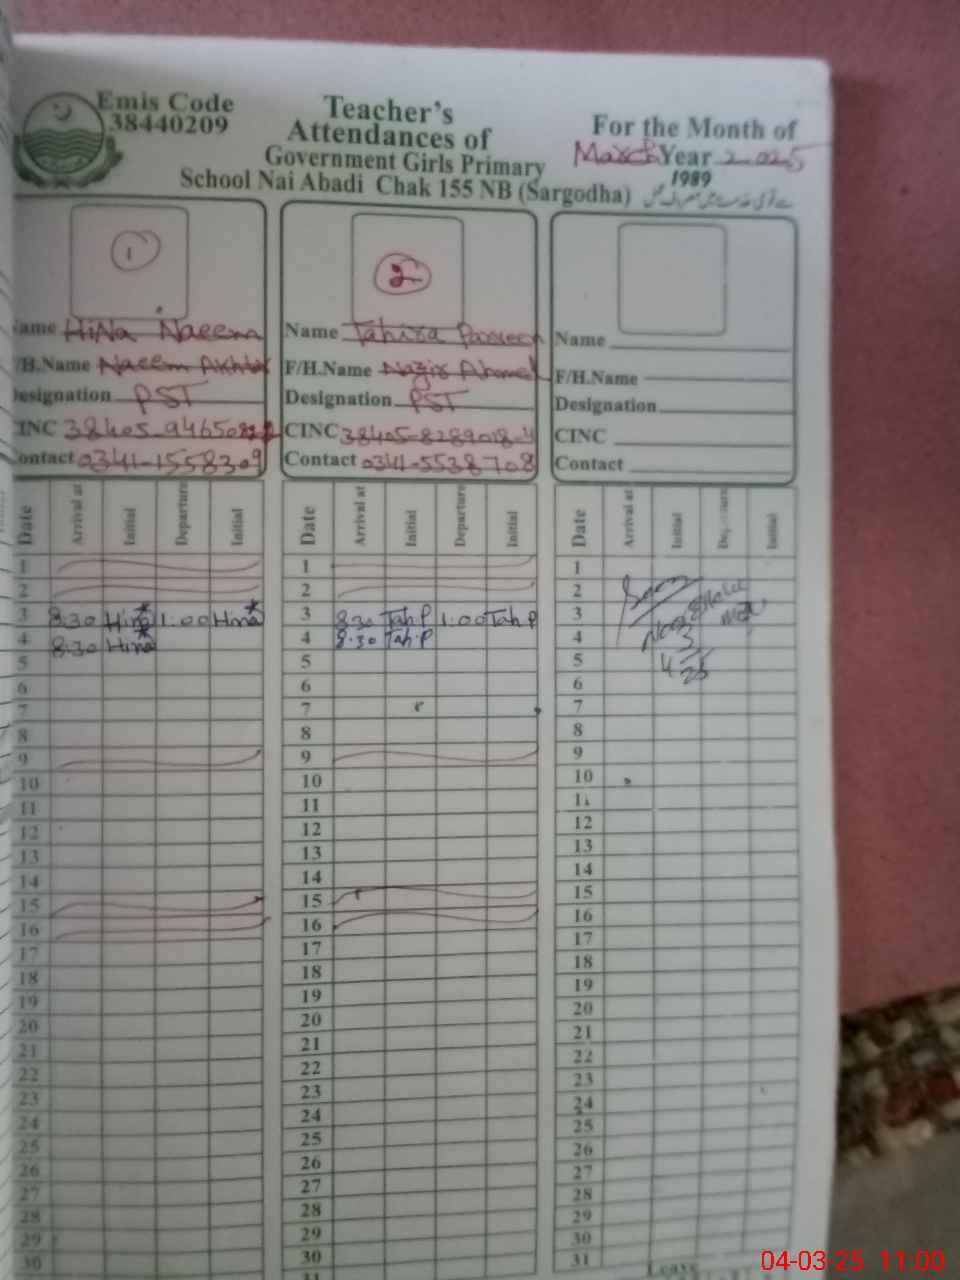 Emis Code
38440209
Teacher's
Attendances of
Government Girls Primary
School Nai Abadi Chak 155 NB (Sargodha)
For the Month of
March Year 2025
1989
1
Name HiNa Naeem
F/H.Name Naeem Akhtar
Designation PST
CINC 38405-9465082-2
Contact 0341-1558309
2
Name Tahira Parveen
F/H.Name Nazir Ahmed
Designation PST
CINC 38405-8289018-4
Contact 0341-5538708
Name
F/H.Name
Designation
CINC
Contact
Date Arrival at Initial Departure Initial
Date Arrival at Initial Departure Initial
Date Arrival at Initial Departure Initial
1 1 1
2 2 2
3 8:30 Hina 1:00 Hina 3 8:30 Tah.P 1:00 Tah.P 3
4 8:30 Hina 4 8:30 Tah.P 4
5 5 5
6 6 6
7 7 7
8 8 8
9 9 9
10 10 10
11 11 11
12 12 12
13 13 13
14 14 14
15 15 15
16 16 16
17 17 17
18 18 18
19 19 19
20 20 20
21 21 21
22 22 22
23 23 23
24 24 24
25 25 25
26 26 26
27 27 27
28 28 28
29 29 29
30 30 30
31 31
Leave
04-03-25 11:00